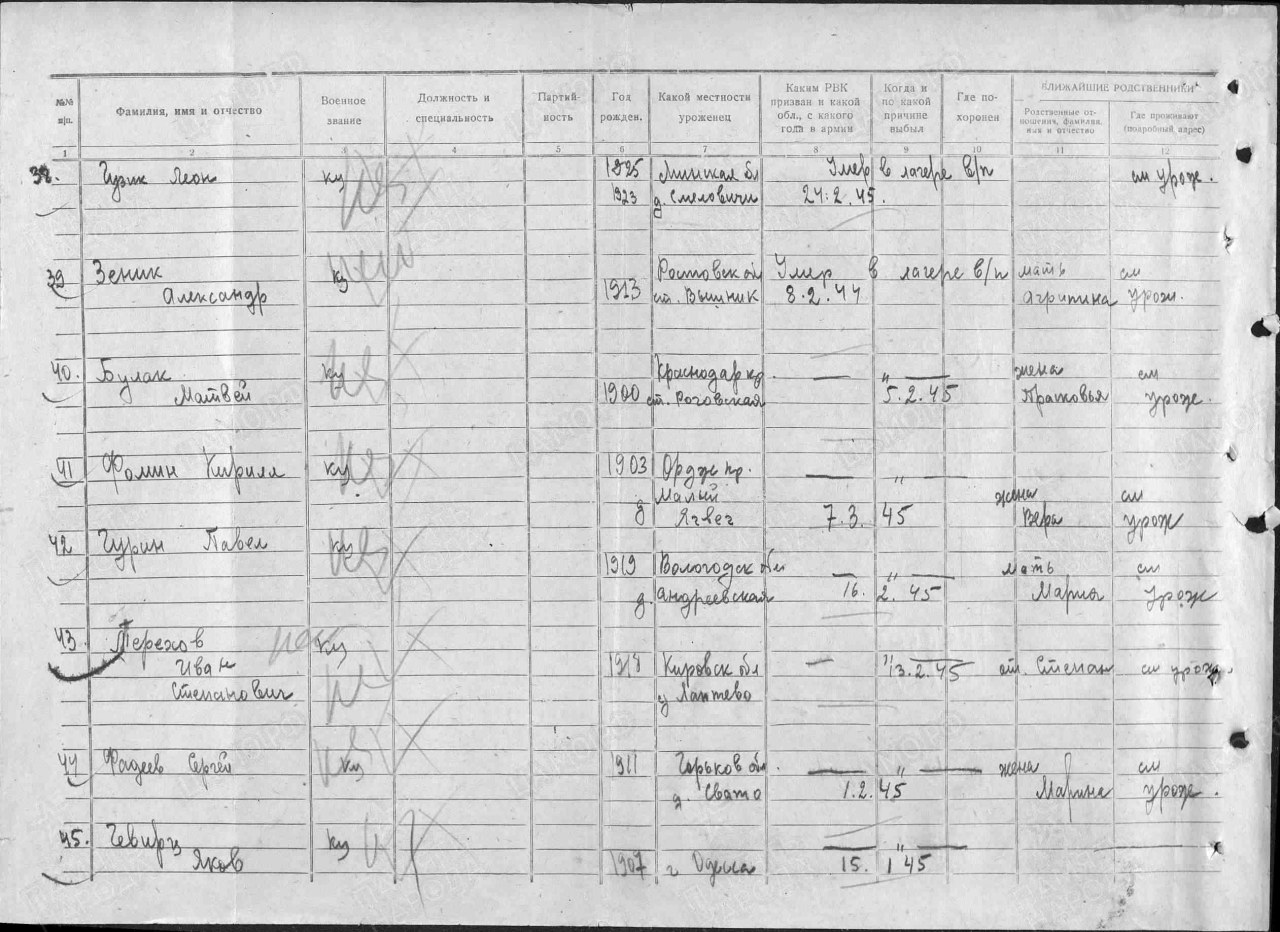 №№ п/п. Фамилия, имя и отчество Военное звание Должность и специальность Партий-ность Год рожден. Какой местности уроженец Каким РВК призван и какой обл., с какого года в армии Когда и по какой причине выбыл Где по-хоронен БЛИЖАЙШИЕ РОДСТВЕННИКИ
Родственные от-ношения, фамилия, имя и отчество Где проживают (подробный адрес)
1 2 3 4 5 6 7 8 9 10 11 12
38. Гузик Леон кц 1925 Минская бл Умер в лагере в/п см урож.
1923 д. Смеловичи 24.2.45.
39 Зеник кц Ростовск обл Умер в лагере в/п мать см
Александр 1913 ст. Вышник 8.2.44 Агрипина урож.
40. Булак кц Краснодар кр — " — жена см
Матвей 1900 ст. Роговская 5.2.45 Прасковья урож.
41 Фомин Кирилл кц 1903 Ордж кр. — " —
Малый жена см
д Ягвег 7.3.45 Вера урож
42 Гурин Павел кц
1919 Вологодск обл — " — мать см
д. Андреевская 16.2.45 Мария урож
43. Терехов кц
Иван 1918 Кировск обл — " 13.2.45 от. Степан см урож.
Степанович у Лаптево
44 Фадеев Сергей кц 1911 Горьков обл. — " — жена см
д. Свато 1.2.45 Марина урож.
45. Гевирц кц — " —
Яков 1907 г Одесса 15.1 45